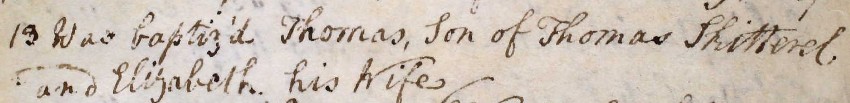 13 Was baptiz'd Thomas, Son of Thomas Skitterel,
and Elizabeth. his Wife